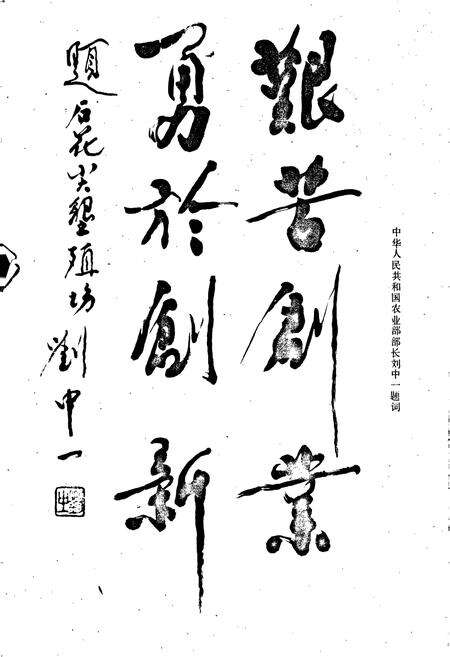 中华人民共和国农业部部长刘中一题词
艰苦創業
勇於創新
題石花尖墾殖场
劉中一